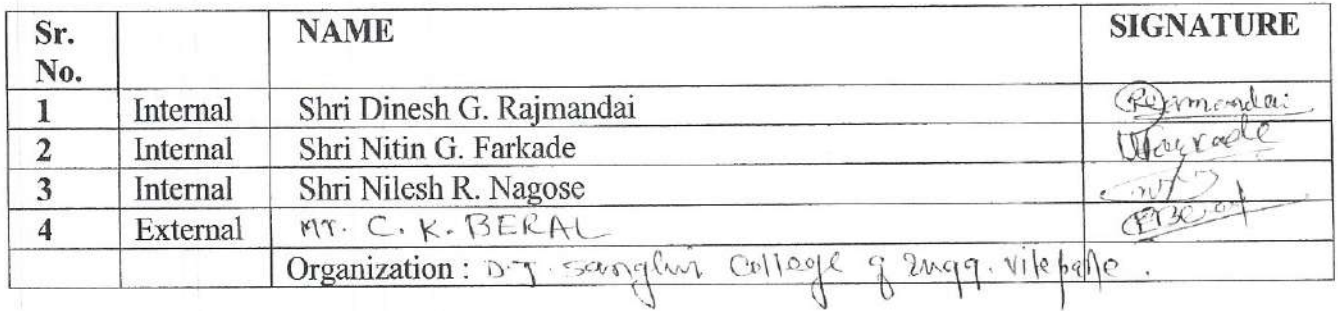 Sr. No. NAME SIGNATURE
1 Internal Shri Dinesh G. Rajmandai Rajmandai
2 Internal Shri Nitin G. Farkade NFarkade
3 Internal Shri Nilesh R. Nagose
4 External Mr. C. K. BERAL
Organization : D.J. Sanghvi College of Engg. Vile parle.